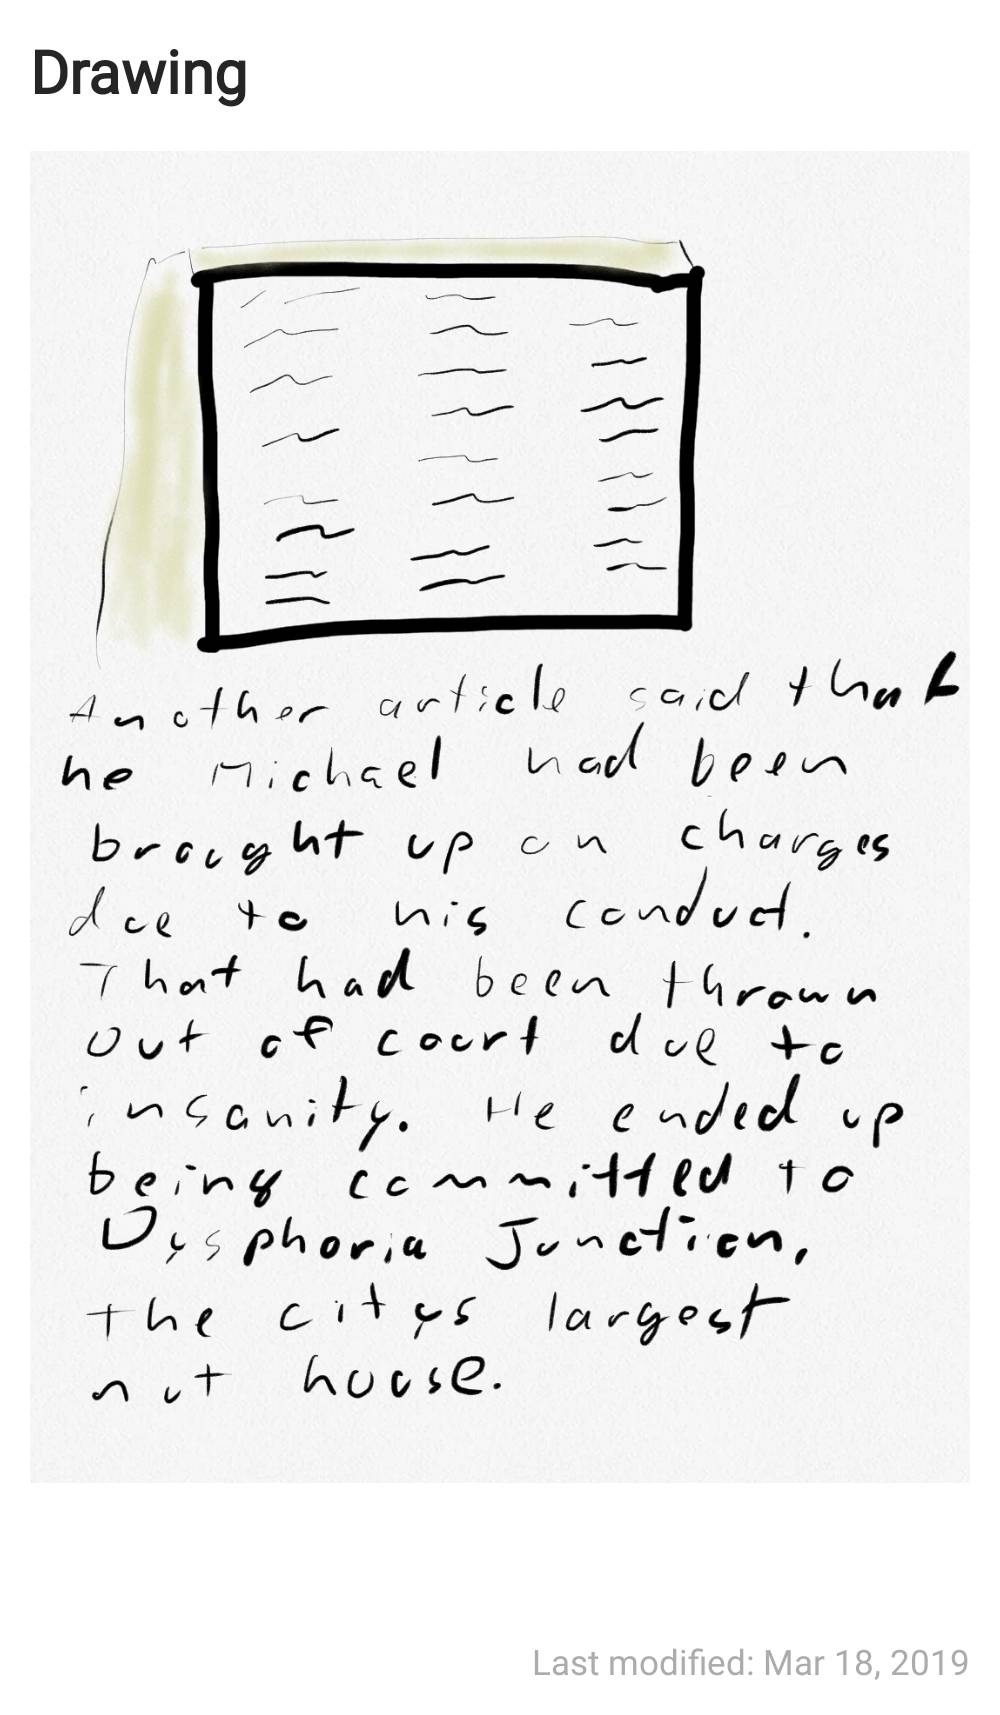 Drawing
Another article said that
he Michael had been
brought up on charges
due to his conduct.
That had been thrown
out of court due to
insanity. He ended up
being committed to
Dysphoria Junction,
the citys largest
nut house.
Last modified: Mar 18, 2019